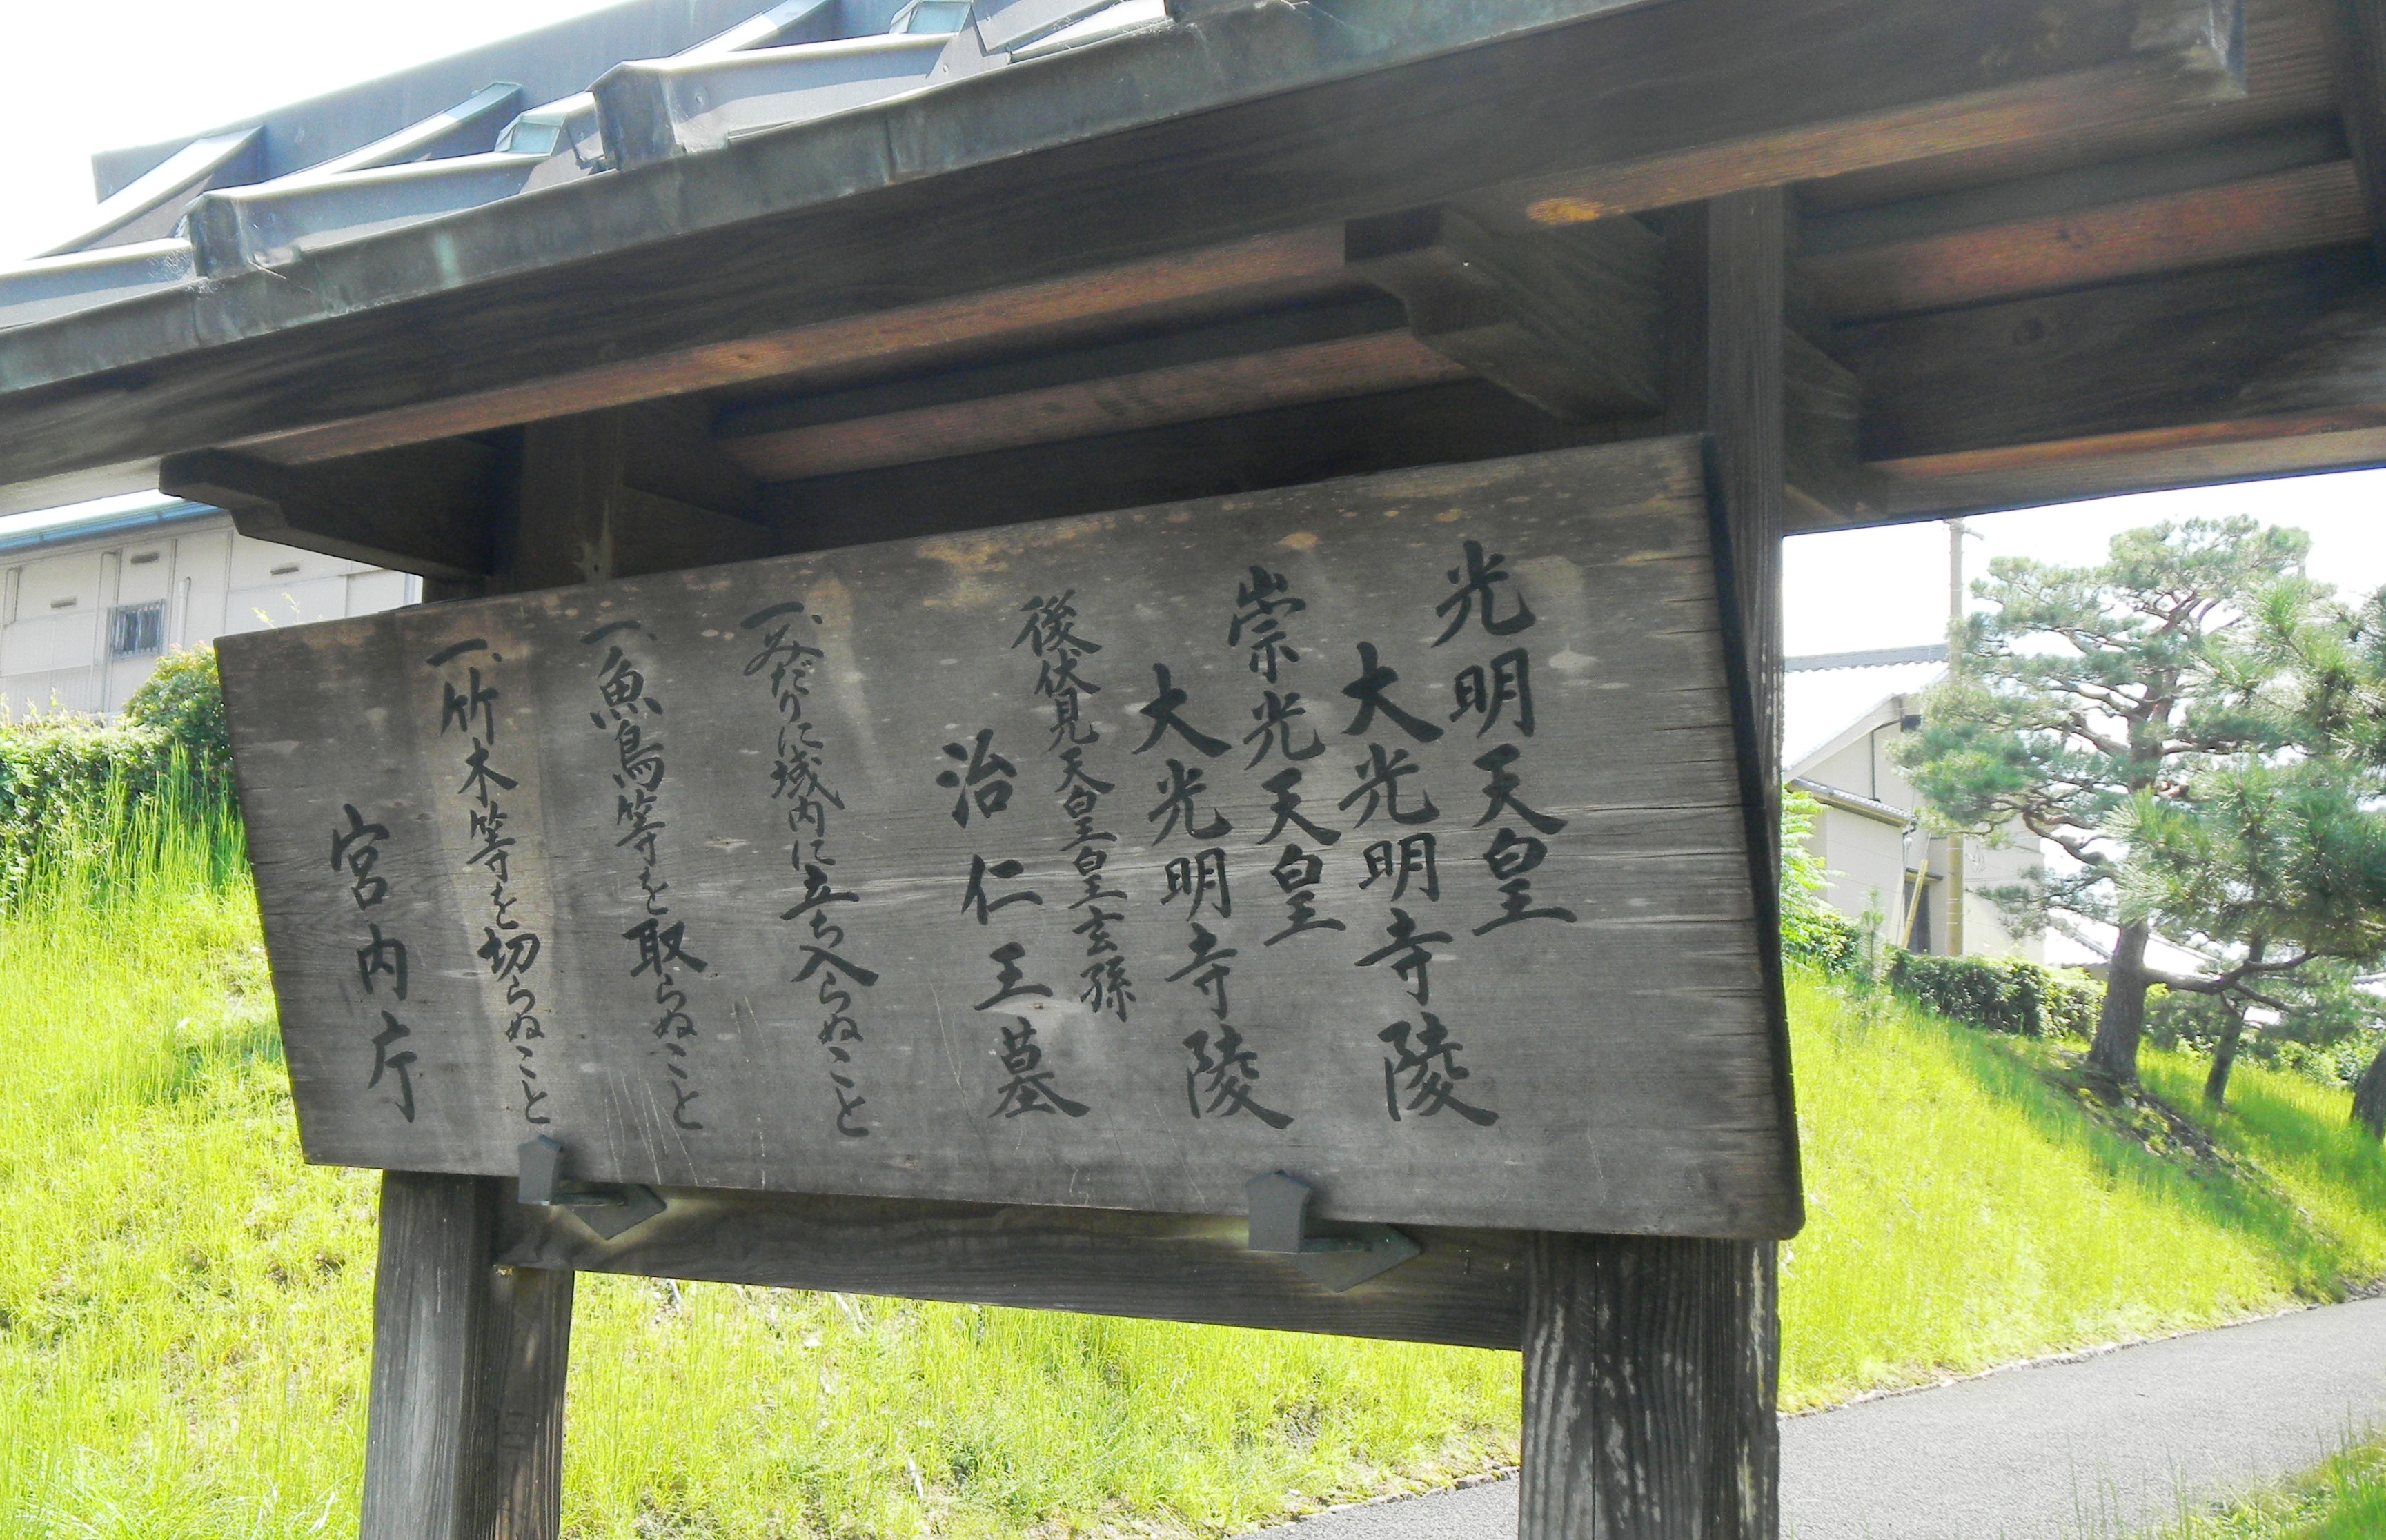 光明天皇
大光明寺陵
崇光天皇
大光明寺陵
後伏見天皇皇玄孫
治仁王墓
一、みだりに域内に立ち入らぬこと
一、魚鳥等を取らぬこと
一、竹木等を切らぬこと
宮内庁